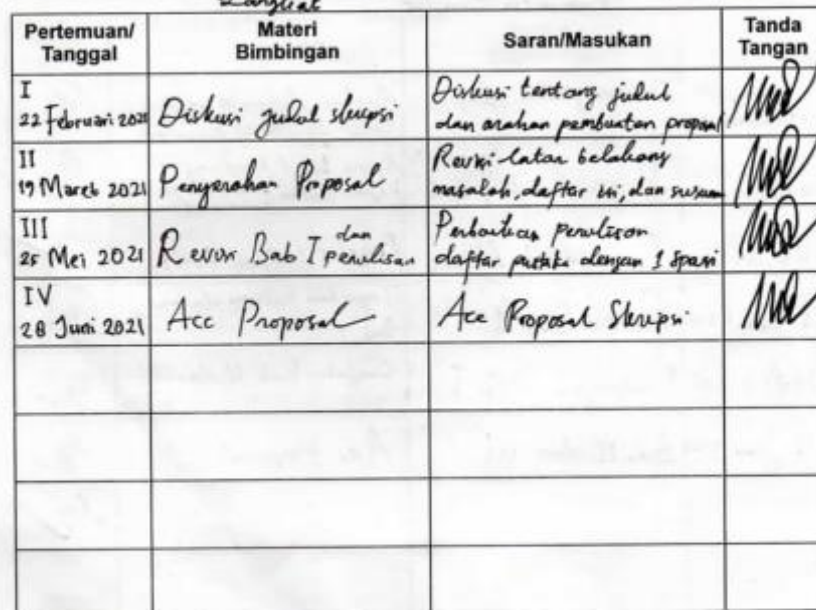 Langkat
Pertemuan/ Tanggal Materi Bimbingan Saran/Masukan Tanda Tangan
I
22 Februari 2021 Diskusi judul skripsi Diskusi tentang judul
dan arahan pembuatan proposal
II
19 Maret 2021 Penyerahan Proposal Revisi latar belakang
masalah, daftar isi, dan susunan
III
25 Mei 2021 Revisi Bab I dan penulisan Perbaikan penulisan
daftar pustaka dengan 1 spasi
IV
28 Juni 2021 Acc Proposal Acc Proposal Skripsi